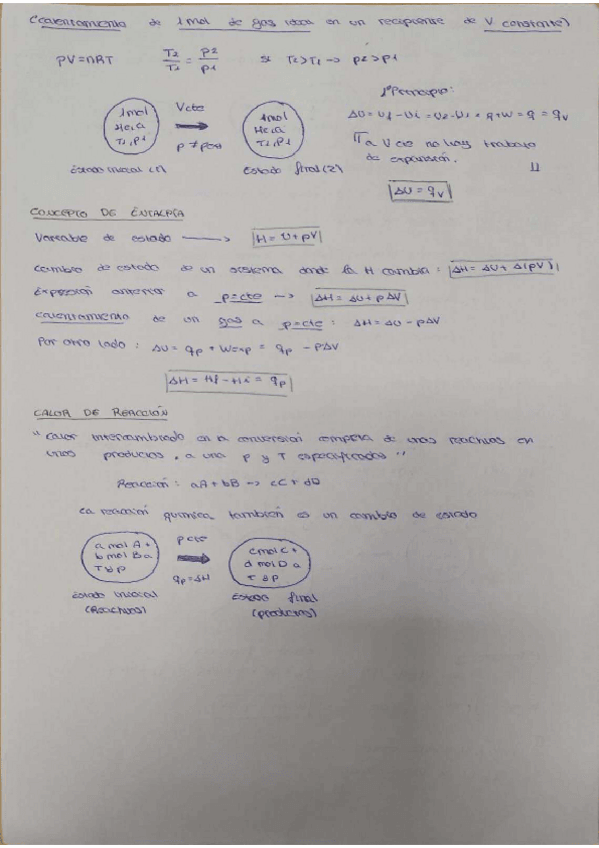 (calentamiento de 1 mol de gas ideal en un recipiente de V constante)
PV=nRT T2/T1 = P2/P1 si T2>T1 -> p2>p1
1º Principio:
ΔU = Uf - Ui = U2 - U1 = q + W = q = qv
[[a V cte no hay trabajo de expansión. ]]
|ΔU = qv|
1mol
He,G
T1,P1
Vcte
p ≠ cte
1mol
He,G
Estado inicial (1)
Estado final (2)
CONCEPTO DE ENTALPÍA
Variable de estado -> |H = U + pV|
Cambio de estado de un sistema donde la H cambia: |ΔH = ΔU + Δ(pV)|
Expresión anterior a p=cte -> |ΔH = ΔU + pΔV|
calentamiento de un gas a p=cte: ΔH = ΔU - pΔV
Por otro lado: ΔU = qp + Wexp = qp - PΔV
|ΔH = Hf - Hi = qp|
CALOR DE REACCIÓN
"calor intercambiado en la conversión completa de unos reactivos en
unos productos, a una p y T especificadas"
Reacción: aA + bB -> cC + dD
La reacción química también es un cambio de estado
a mol A +
b mol B a
T y P
p cte
qp = ΔH
c mol C +
d mol D a
T y P
Estado inicial
(Reactivos)
Estado final
(productos)